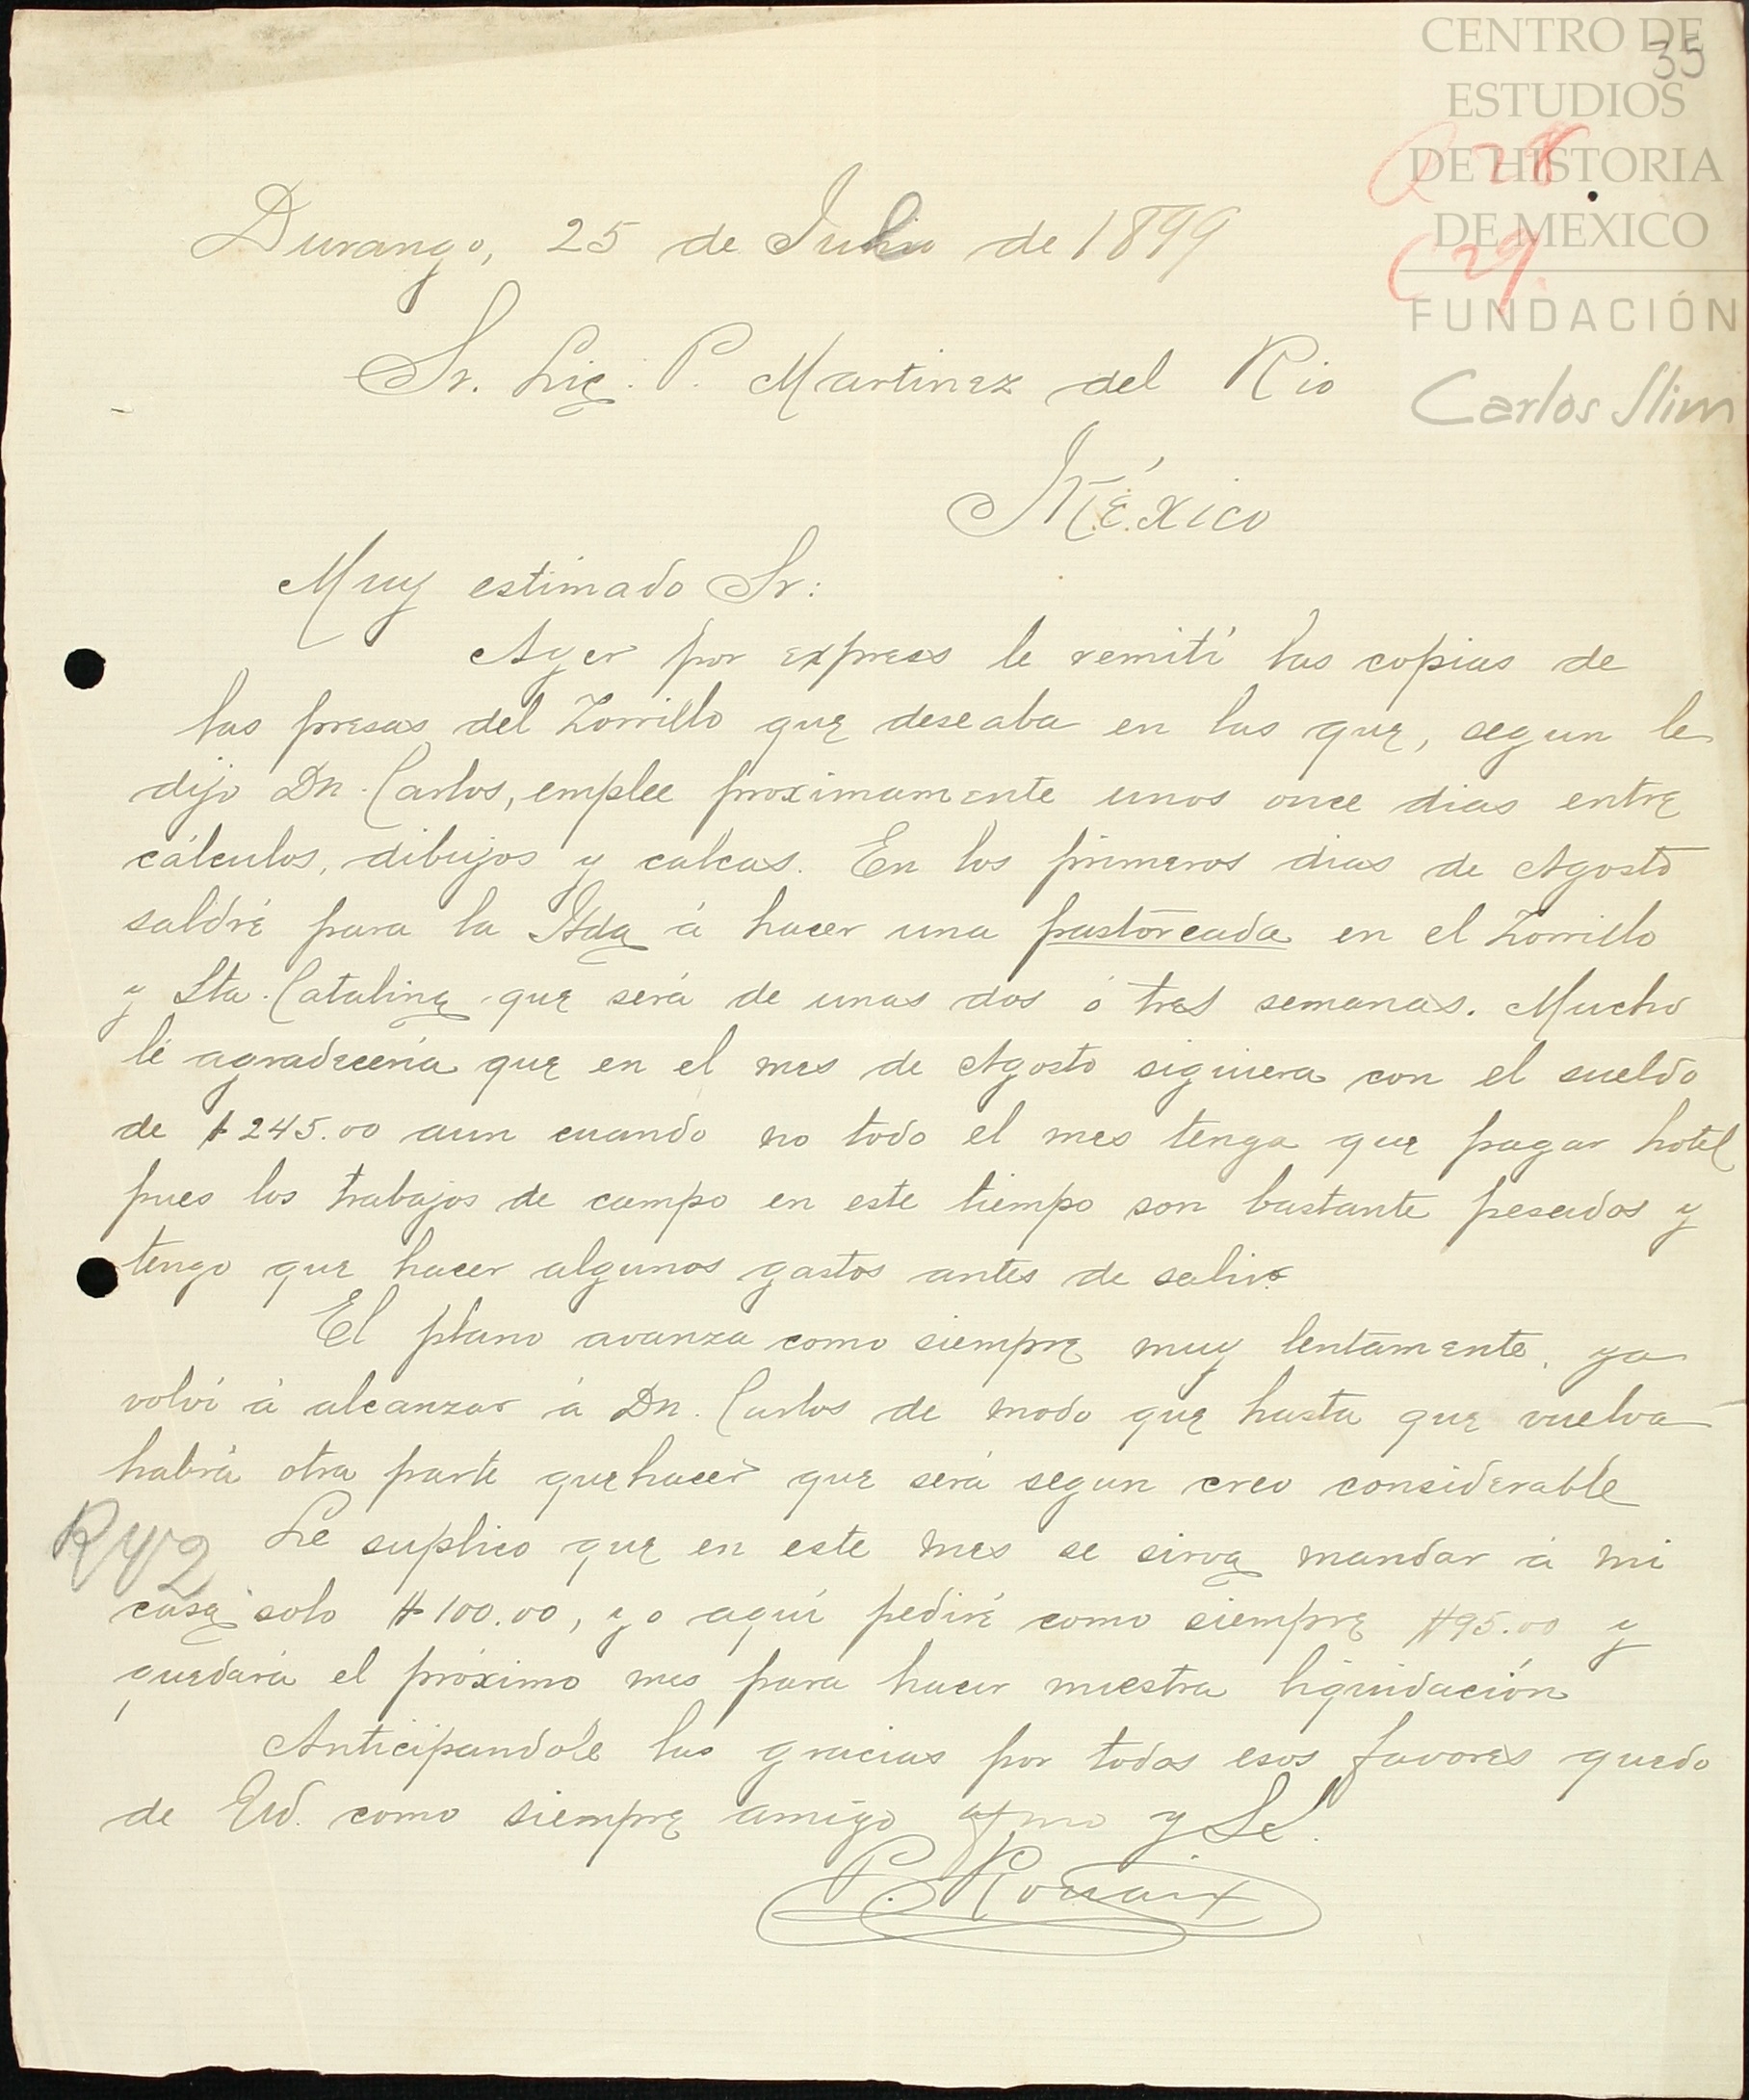 CENTRO DE
ESTUDIOS
DE HISTORIA
DE MEXICO
FUNDACIÓN
Carlos Slim
35
R 28
C 29.
Durango, 25 de Julio de 1899
Sr. Lic. P. Martinez del Rio
México
Muy estimado Sr:
Ayer por express le remití las copias de
las presas del Zorrillo que deseaba en las que, segun le
dijo Dn. Carlos, emplee proximamente unos once dias entre
cálculos, dibujos y calcas. En los primeros dias de Agosto
saldré para la Hda á hacer una pastoreada en el Zorrillo
y Sta. Catalina que será de unas dos ó tres semanas. Mucho
le agradecería que en el mes de Agosto siguiera con el sueldo
de $245.00 aun cuando no todo el mes tenga que pagar hotel
pues los trabajos de campo en este tiempo son bastante pesados y
tengo que hacer algunos gastos antes de salir.
El plano avanza como siempre muy lentamente, ya
volví á alcanzar á Dn. Carlos de modo que hasta que vuelva
habrá otra parte que hacer que será segun creo considerable
Le suplico que en este mes se sirva mandar á mi
casa solo $100.00, yo aquí pediré como siempre $95.00 y
quedará el próximo mes para hacer nuestra liquidación
Anticipandole las gracias por todos esos favores quedo
de Ud. como siempre amigo afmo y SS.
P. Rouaix